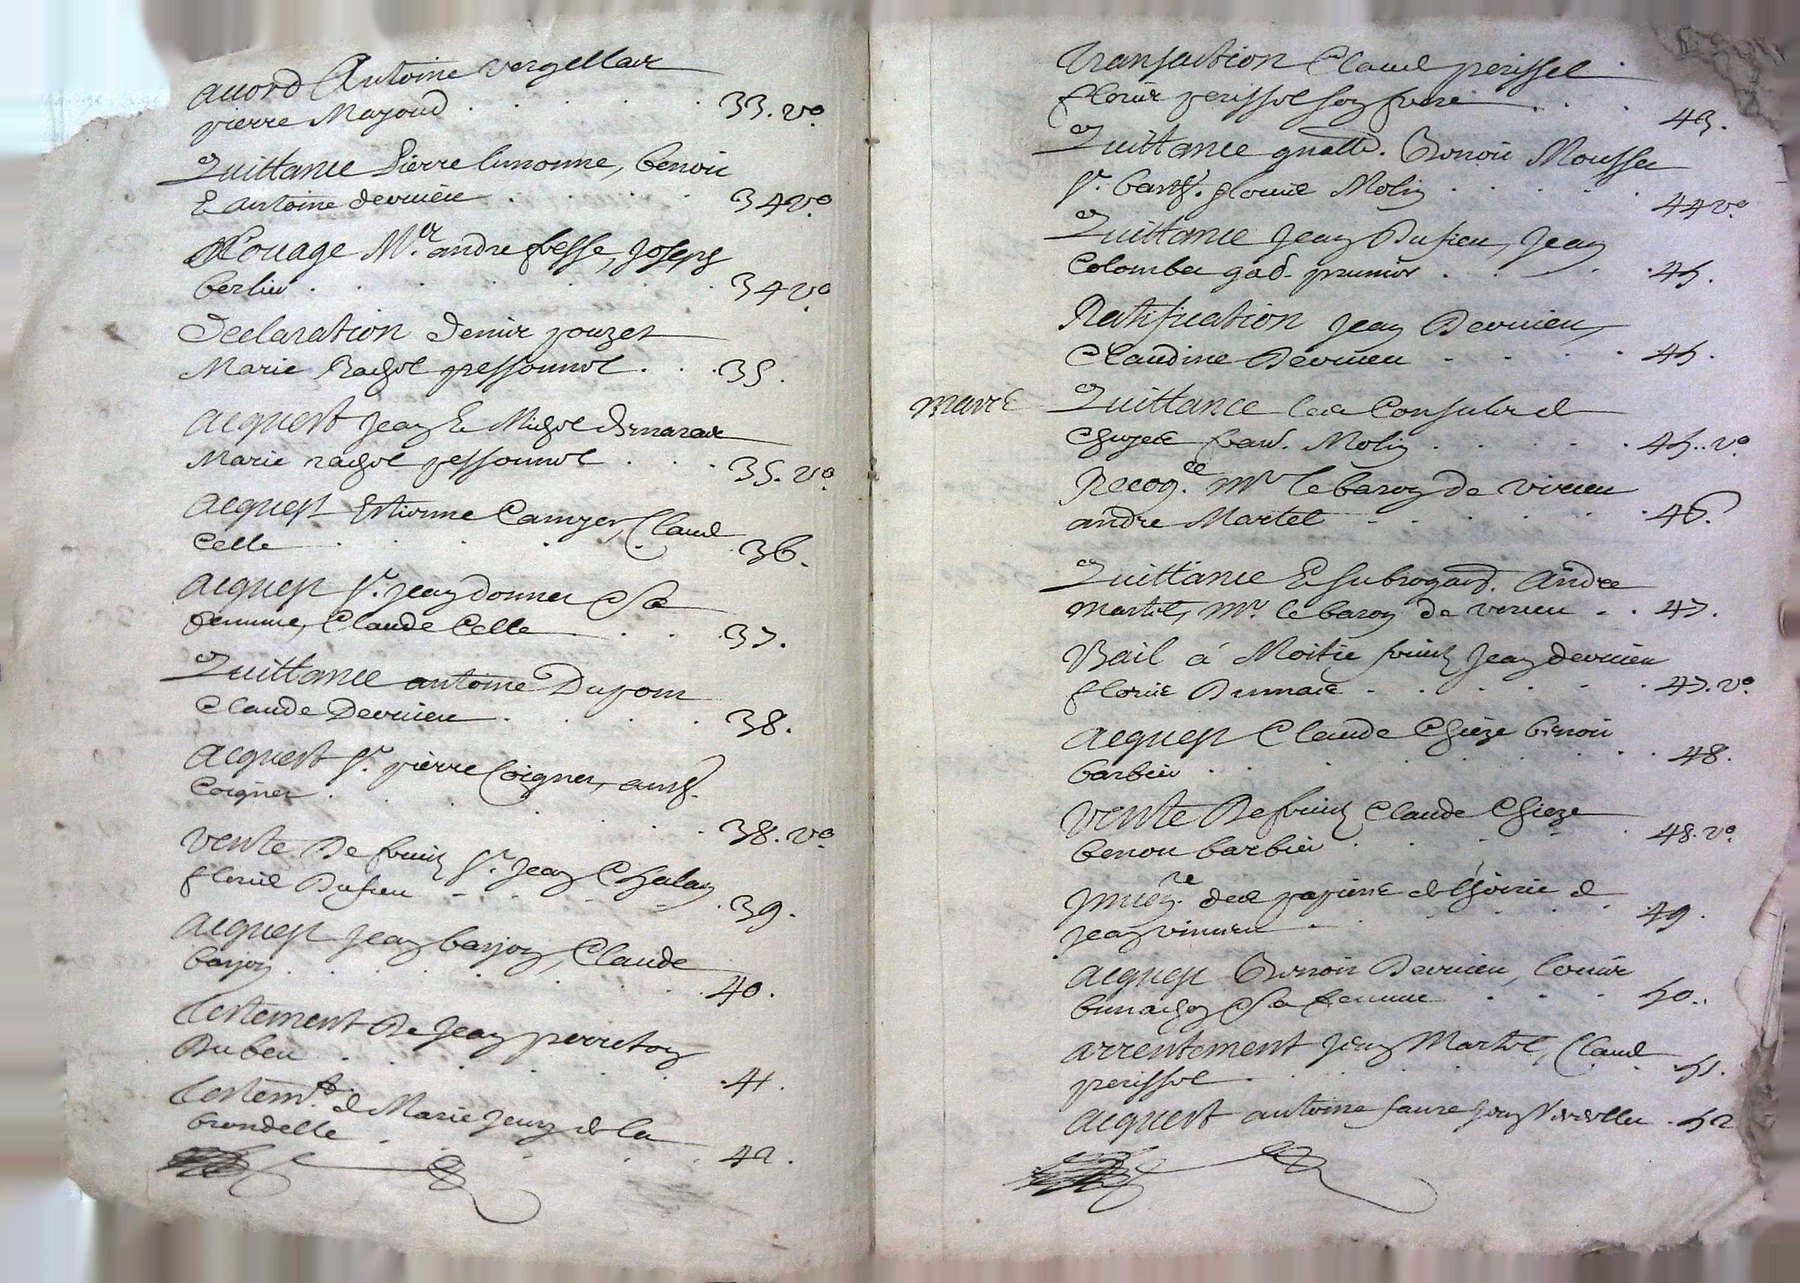 acord Antoine vergellat
pierre Mazoud . . . . . 33. vo
Quittance Pierre limonne, benoit
& antoine devuieu . . . . 34 vo
Louage Mr. andre fesse, Joseph
berlier . . . . . . . 34 vo
Declaration denuir pouzet
Marie Rachol pessonnol . . . 35.
acquest Jean & Michol
Marie rachol pessonnol . . . 35. vo
acquest Estienne Camyer, Claud
Celle . . . . . 36.
acquest sr. Jean donner & sa
femme, Claude Celle . . . 37.
Quittance antoine Dupom
Claude Devuieu . . . . 38.
acquest sr. pierre Coigner,
Coigner . . . . . . 38. vo
vente De fruitz sr. Jean Chalan
florid Dusieu . . . . 39.
acquest Jean barjon, Claude
barjon . . . . . . 40.
testement De Jean perreton
Dubeu . . . . . . 41.
testemt. de Marie Jeune de la
brondelle . . . . . 42.
transaction Claud perissel
florid perissol son frere . . . 43.
Quittance gnalle. Benoit Moussier
sr. barth. florid Molin . . . . 44 vo
Quittance Jean Dusieu, Jean
Colombet gad. prunier . . . . 45.
Ratification Jean Devuieu,
Claudine Devuieu . . . . 45.
Quittance les Consulz de
franc. Molin . . . . . 45. vo
Recog.ce mr le baron de virieu
andre Martel . . . . . 46.
Quittance & subrogaon. andre
martel, mr. le baron de virieu . . 47.
Bail a Moitie fruitz Jean devuieu
florid Dumare . . . . . 47. vo
acquest Claude Chieze benoit
barbier . . . . . . 48.
vente De fruitz Claude Chieze
benoit barbier . . . . 48. vo
des papiers de de
Jean . . . . . . 49.
acquest Benoit Devuieu,
& sa femme . . . 50.
arrentement Jean Martel, Claud
perissol . . . . . . 51.
acquest antoine faure Jean . 52